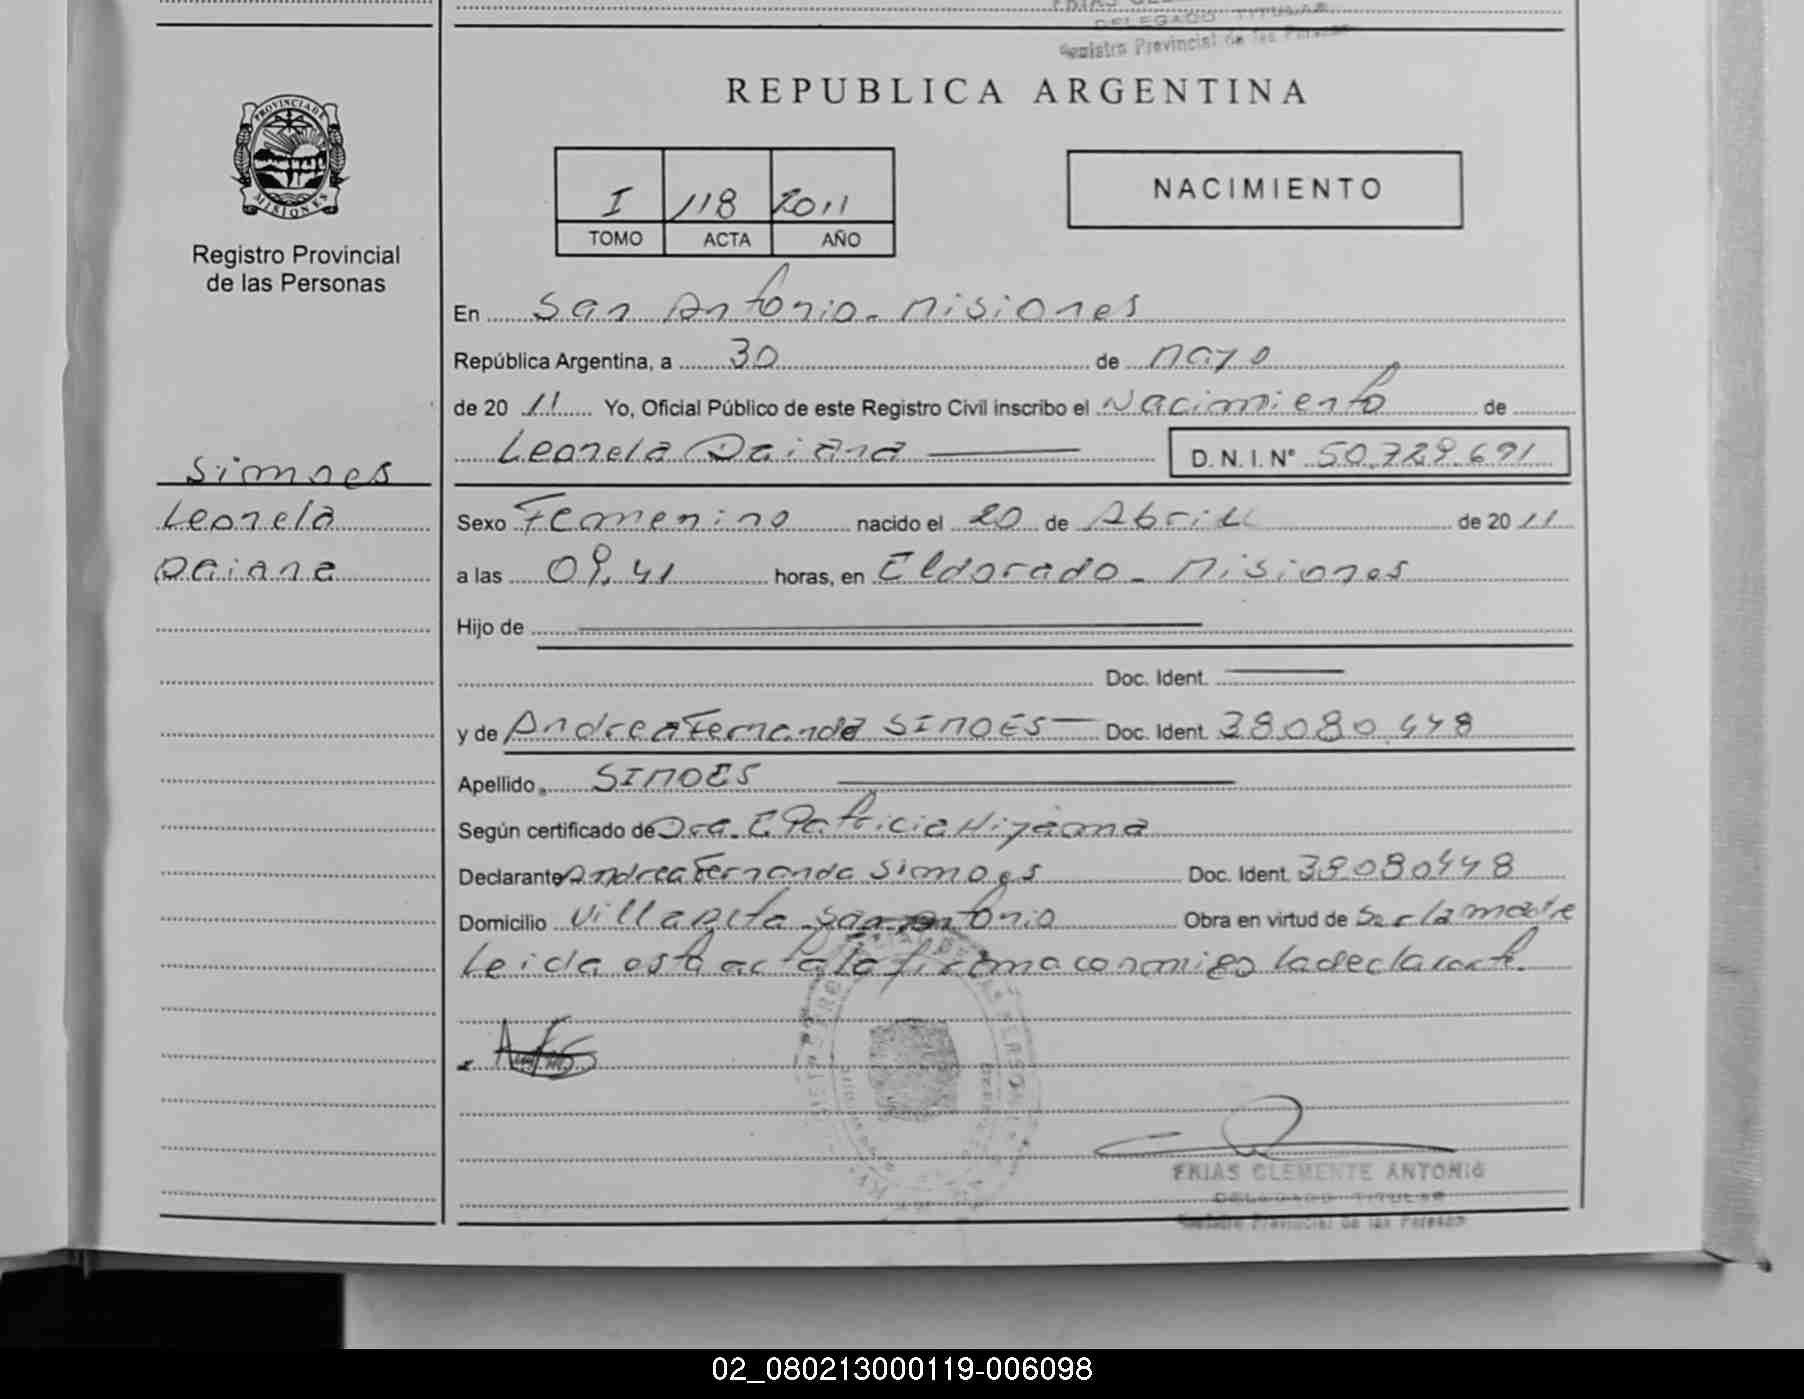 REPUBLICA ARGENTINA
PROVINCIA DE
MISIONES
Registro Provincial
de las Personas
I 118 2011
TOMO ACTA AÑO
NACIMIENTO
En San Antonio - Misiones
República Argentina, a 30 de Mayo
de 20 11 Yo, Oficial Público de este Registro Civil inscribo el Nacimiento de
Leonela Daiana D. N. I. N° 50.729.691
Simoes
Leonela
Daiana
Sexo Femenino nacido el 20 de Abril de 20 11
a las 09.41 horas, en Eldorado - Misiones
Hijo de
Doc. Ident.
y de Andrea Fernanda SIMOES Doc. Ident. 38080.448
Apellido SIMOES
Según certificado de Dra. Patricia
Declarante Andrea Fernanda Simoes Doc. Ident. 38080448
Domicilio Villa San Antonio Obra en virtud de Ser la madre
Leida esta acta la firma conmigo la declarante.
FRIAS CLEMENTE ANTONIO
DELEGADO TITULAR
Registro Provincial de las Personas
02_080213000119-006098